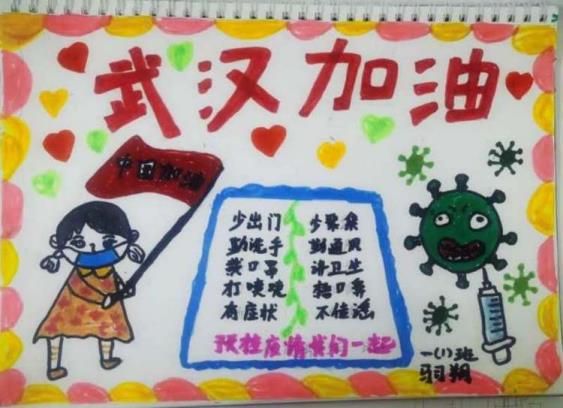 武汉加油
中国加油
少出门 少聚集
勤洗手 勤通风
戴口罩 讲卫生
打喷嚏 捂口鼻
有症状 不信谣
预控疫情我们一起
一(1)班
羽翔